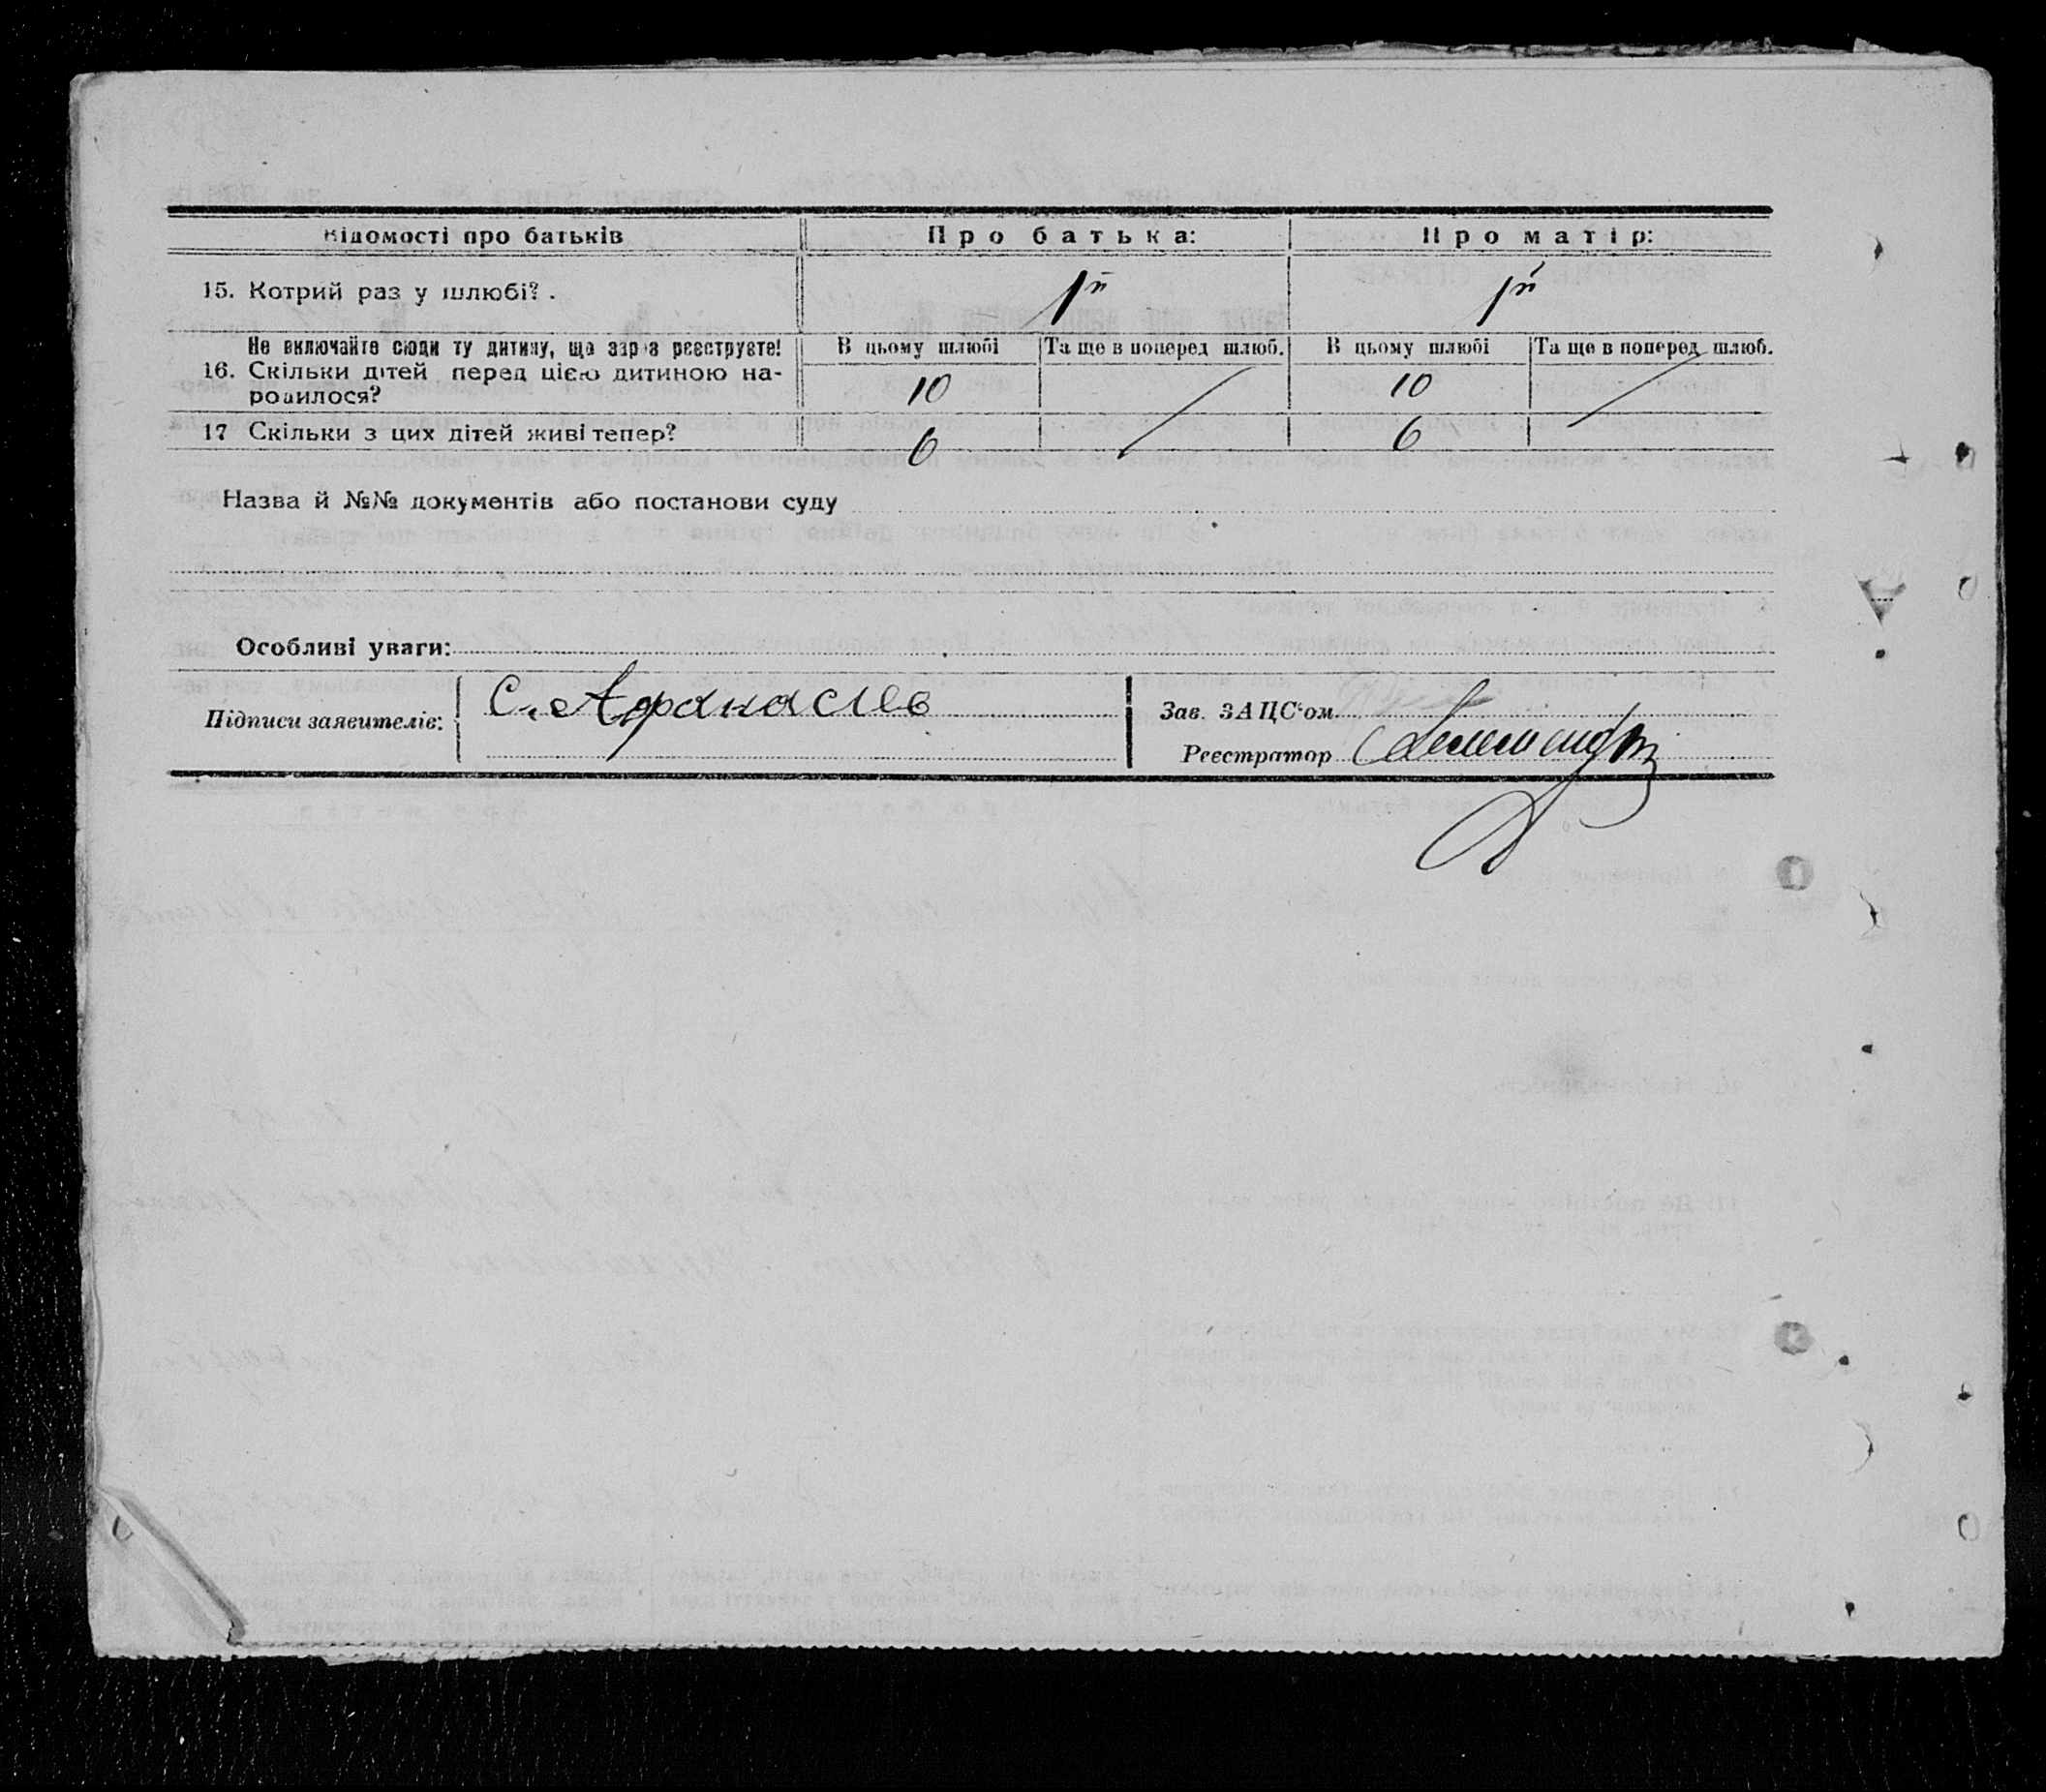 Відомості про батьків Про батька: Про матір:
15. Котрий раз у шлюбі? . 1й 1й
Не включайте сюди ту дитину, що зараз реєструєте! В цьому шлюбі Та ще в поперед шлюб. В цьому шлюбі Та ще в поперед шлюб.
16. Скільки дітей перед цією дитиною на-
родилося? 10 10
17 Скільки з цих дітей живі тепер? 6 6
Назва й №№ документів або постанови суду
Особливі уваги:
Підписи заявителів: С. Афанасієв
Зав. ЗАЦС'ом
Реєстратор